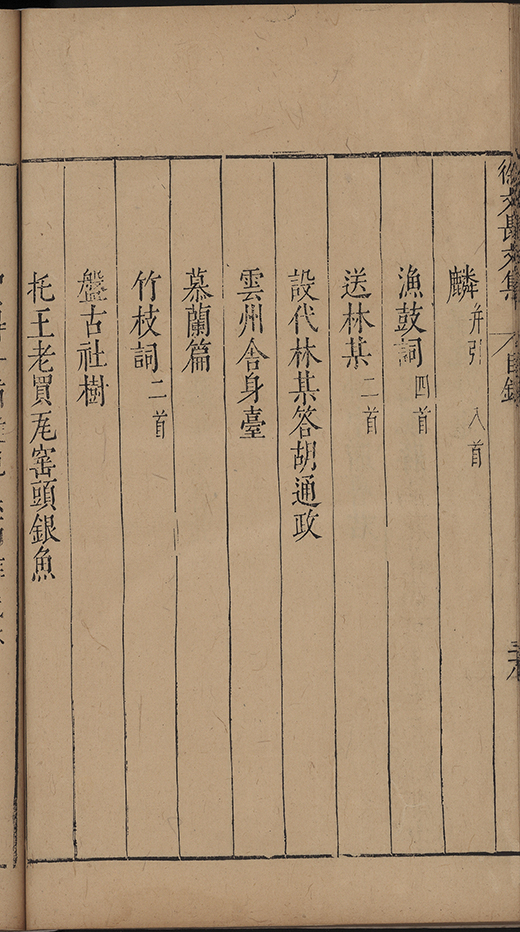 徐文長文集 目錄
麟 并引 八首
漁鼓詞 四首
送林某 二首
設代林某答胡通政
雲州舍身臺
慕蘭篇
竹枝詞 二首
盤古社樹
托王老買瓦窑頭銀魚